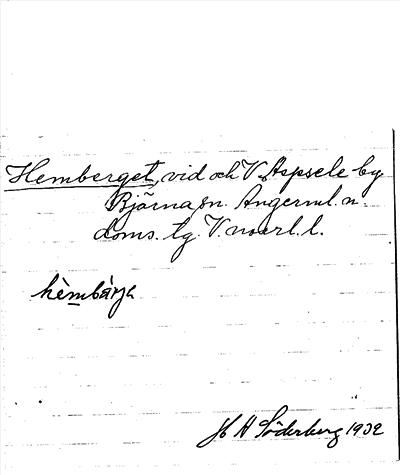 Hemberget, vid och V. Aspsele by
Björna sn. Ångerml. n.
doms. tg. V norrl. l.
hèmbárjə
H Söderberg 1932